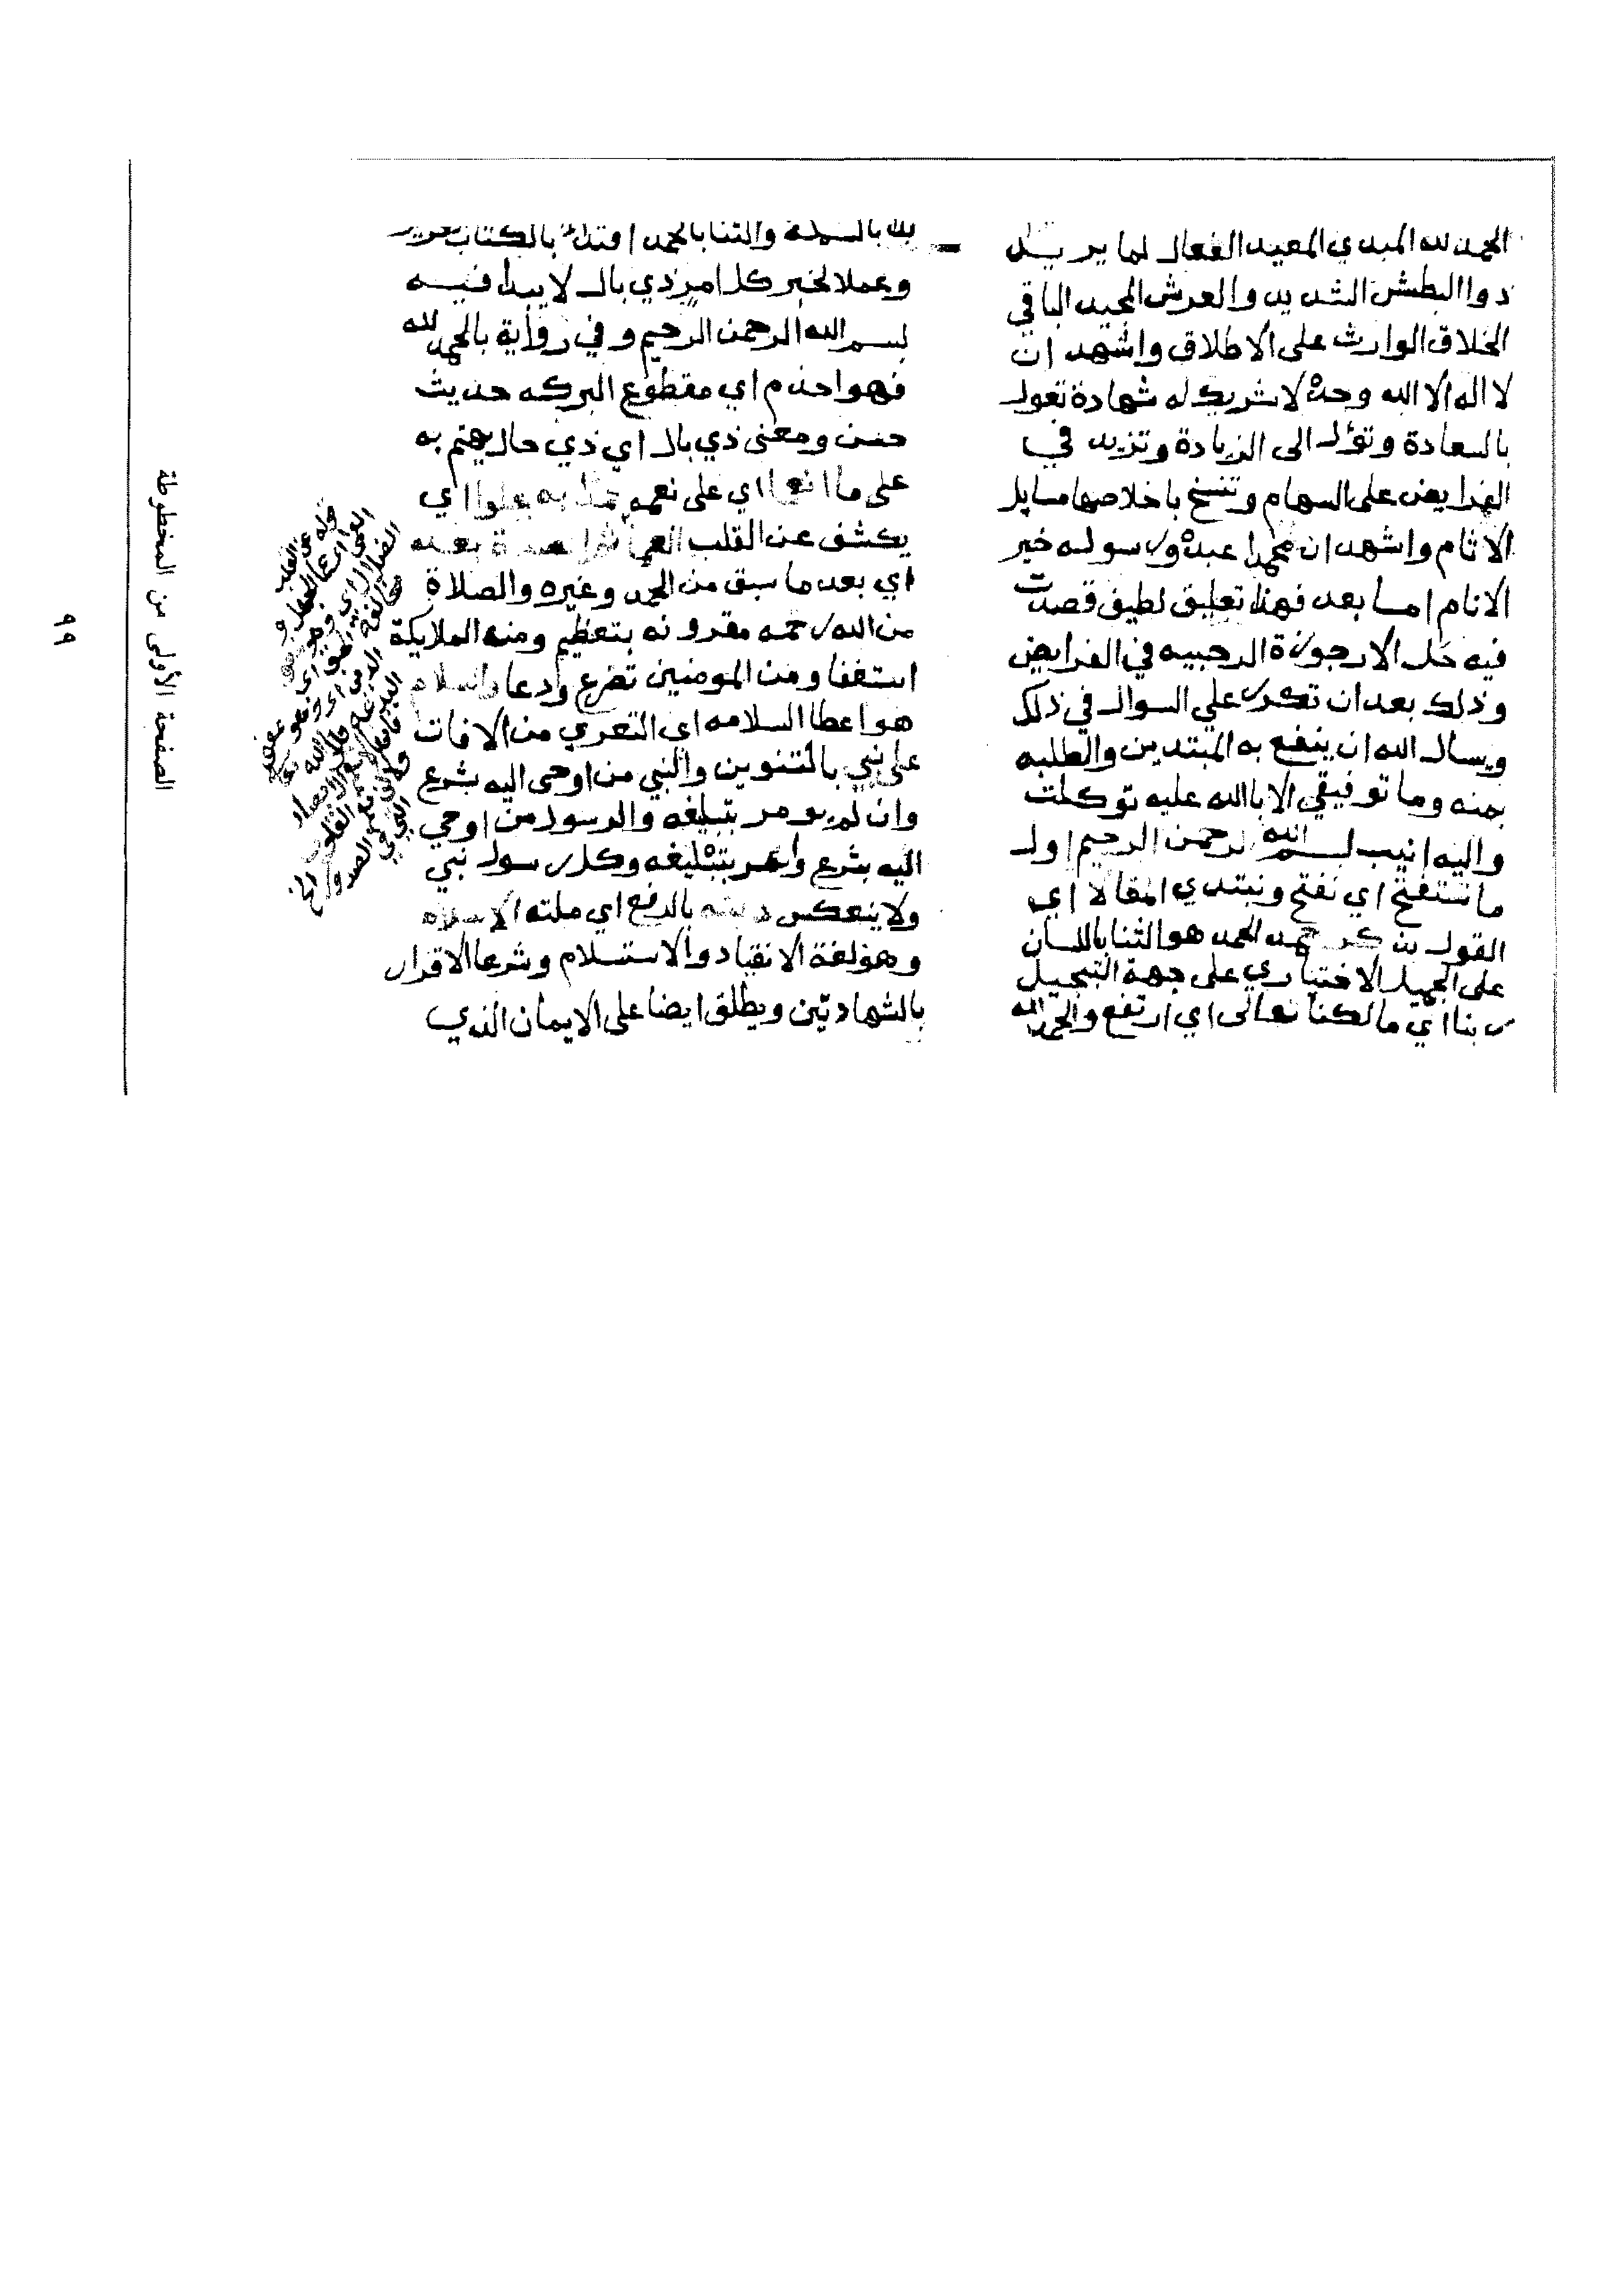 الحمد لله المبدي المعيد الفعال لما يريد
ذوا البطش الشديد والعرش المجيد الباقي
الخلاق الوارث على الاطلاق واشهد ان
لا اله الا الله وحده لا شريك له شهادة تعول
بالسعادة وتؤل الى الزيادة وتزيد في
الفرايض على السهام وتنسخ باخلاصها مسايل
الاثام واشهد ان محمدا عبده ورسوله خير
الانام اما بعد فهذا تعليق لطيف قصدت
فيه حل الارجوزة الرحبيه في الفرايض
وذلك بعد ان تكرر علي السوال في ذلك
ويسال الله ان ينفع به المبتدين والطلبه
بمنه وما توفيقي الا باالله عليه توكلت
واليه انيب بسم الله الرحمن الرحيم اول
ما نستفتح اي نفتح ونبتدي المقالا اي
القول بذكر حمد الحمد هو الثنا باللسان
على الجميل الاختياري على جهة التبجيل
ربنا اي مالكنا تعالى اي ارتفع والحمد لله
بالبسملة والثنا بالحمد اقتداء بالكتاب العزيز
وعملا لخبر كل امر ذي بال لا يبدا فيه
بسم الله الرحمن الرحيم وفي رواية بالحمد لله
فهو اجذم اي مقطوع البركه حديث
حسن ومعنى ذي بال اي ذي حال يهتم به
على ما انعما اي على نعمه حمدا به يجلوا اي
يكشف عن القلب العما ثم الصلاة بعد
اي بعد ما سبق من الحمد وغيره والصلاة
من الله رحمه مقرونه بتعظيم ومن الملايكة
استغفا ومن المومنين تضرع ودعا والسلام
هو اعطا السلامه اى التعري من الافات
على نبي بالتنوين والنبي من اوحى اليه بشرع
وان لم يومر بتبليغه والرسول من اوحي
اليه بشرع وامر بتبليغه وكل رسول نبي
ولا ينعكس دينه بالرفع اي ملته الاسلام
وهو لغة الانقياد والاستسلام وشرعا الاقرار
بالشهادتين ويطلق ايضا على الايمان الذي
قوله عن القلب
الصفحة الأولى من المخطوطة
٩٩